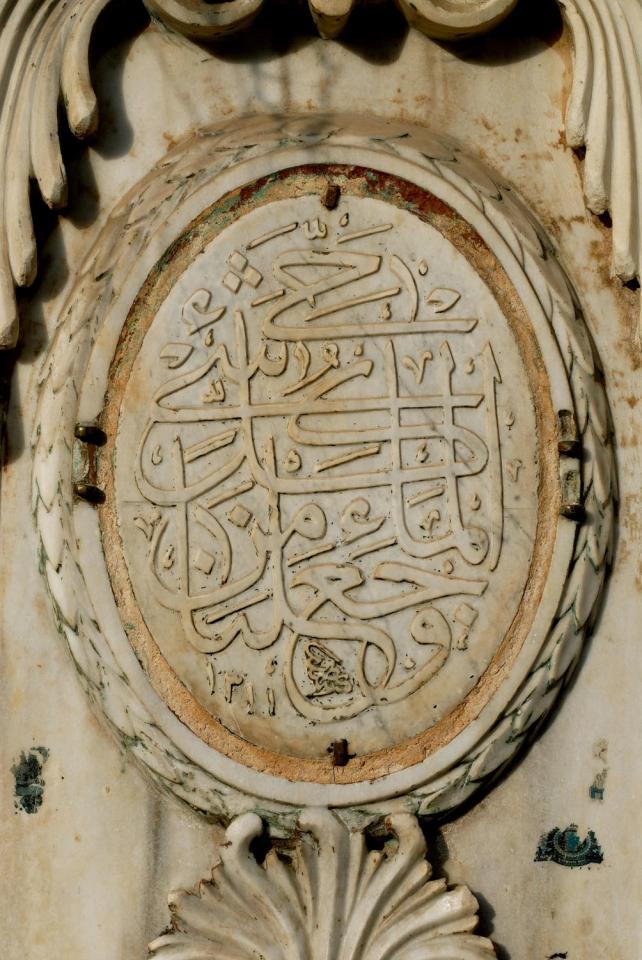 وجعلنا من الماء كل شيء حي
١٣١١